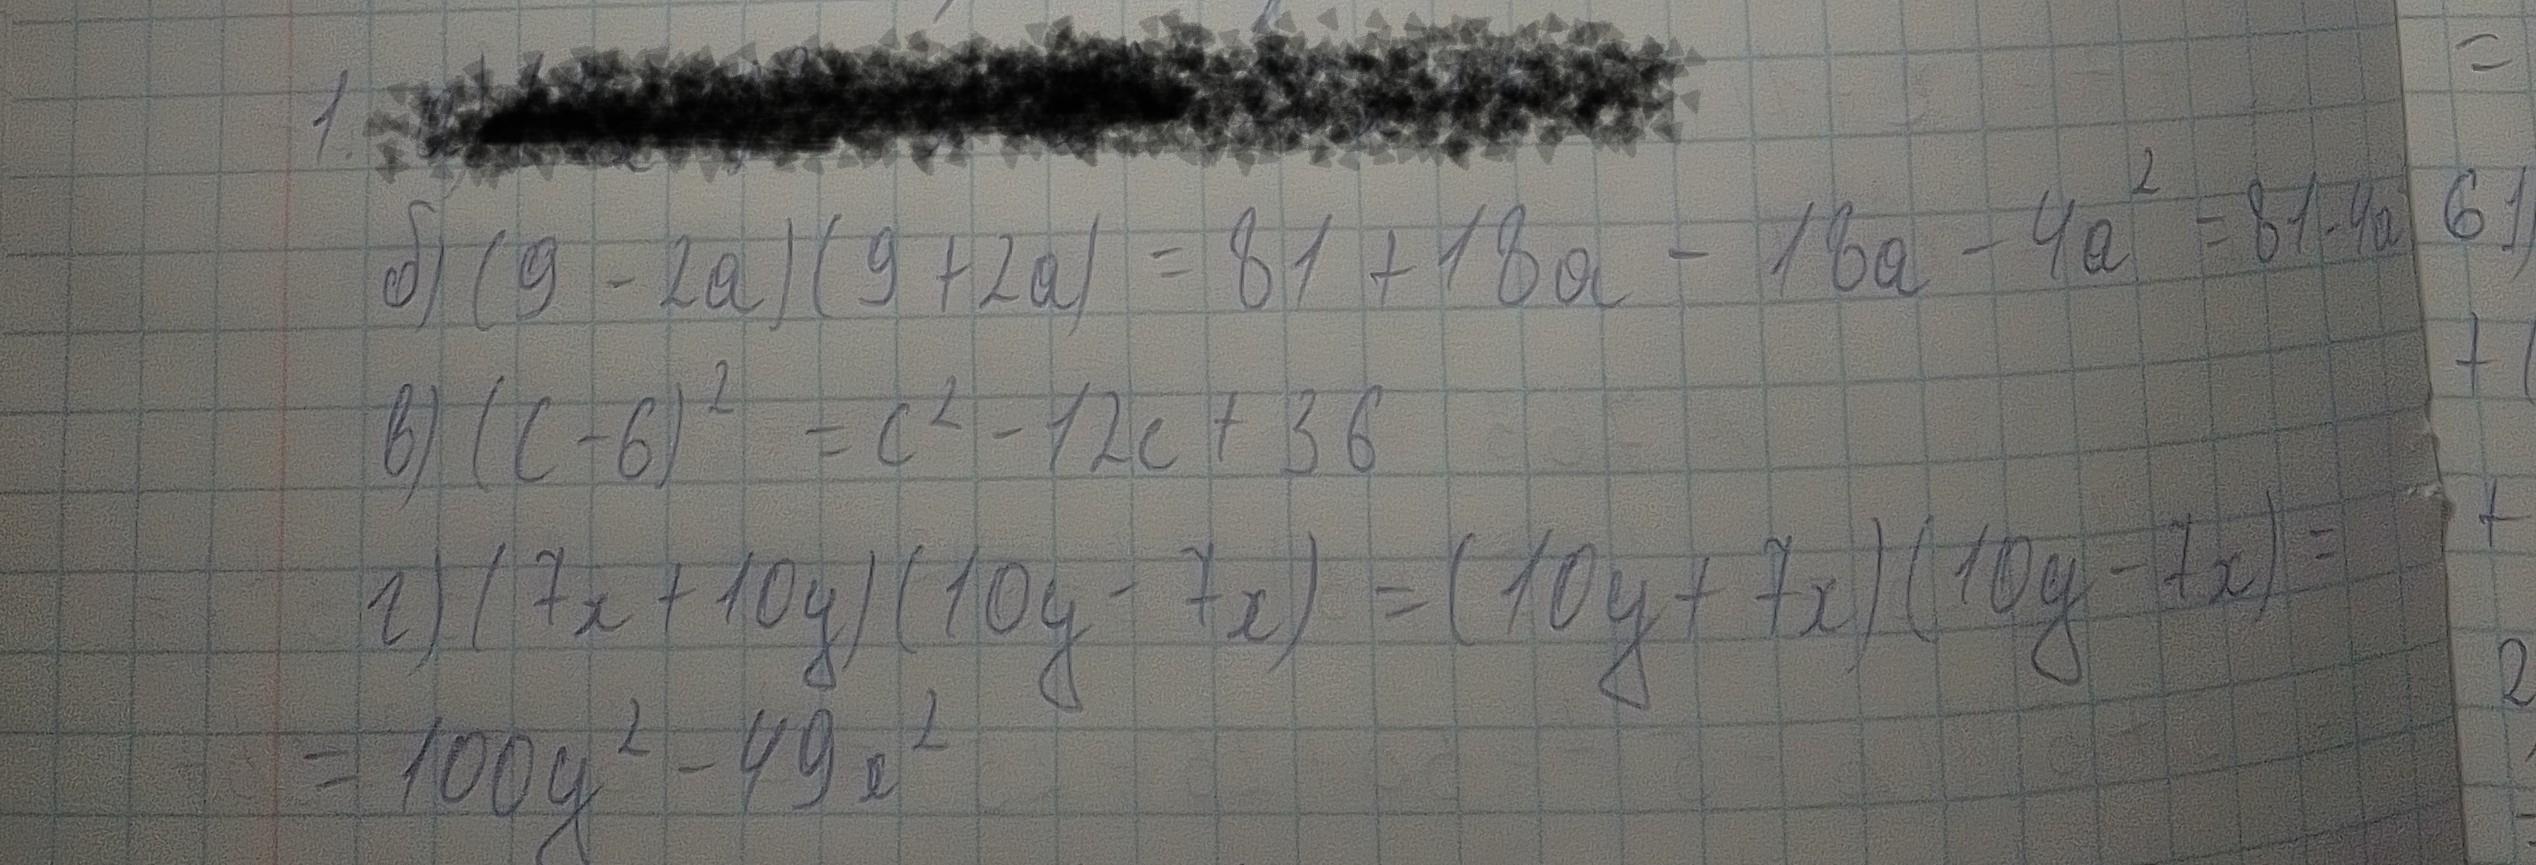 1.
б) (9 - 2a)(9 + 2a) = 81 + 18a - 18a - 4a² = 81 - 4a
в) (c - 6)² = c² - 12c + 36
г) (7x + 10y)(10y - 7x) = (10y + 7x)(10y - 7x) =
= 100y² - 49x²
=
61)
+ (
+
2